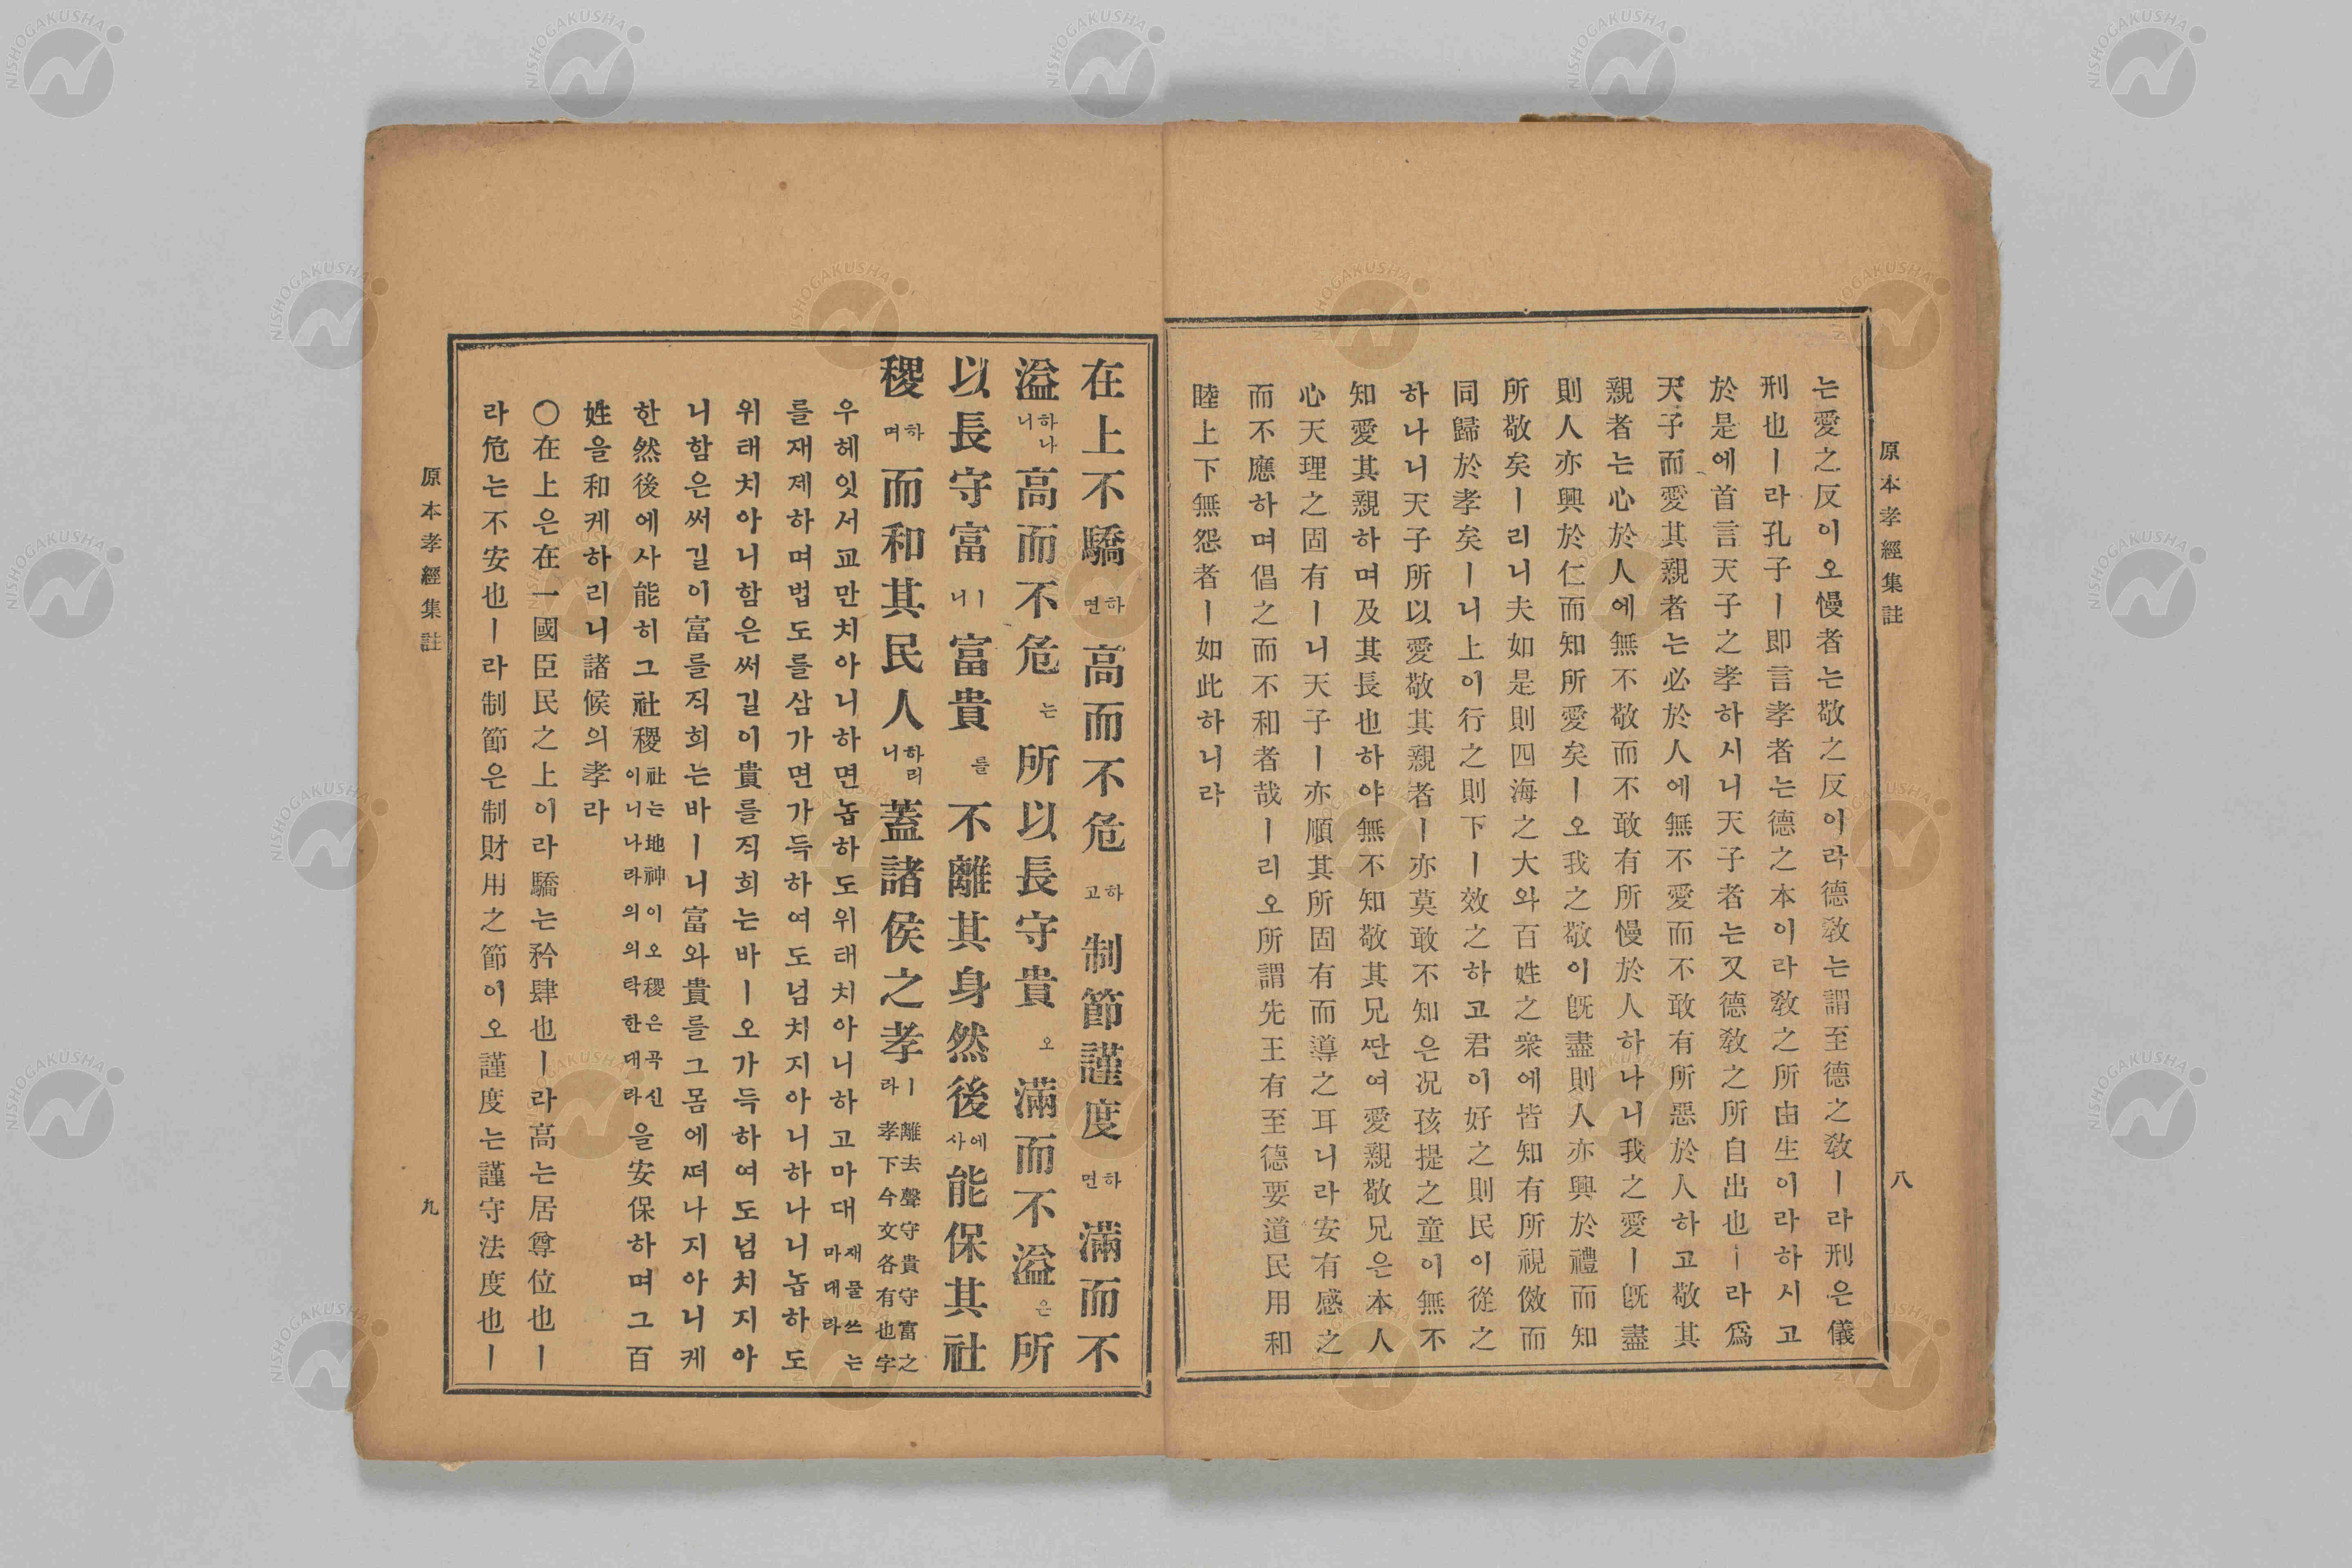 原本孝經集註 八
는愛之反이오慢者는敬之反이라德敎는謂至德之敎ㅣ라刑은儀
刑也ㅣ라孔子ㅣ卽言孝者는德之本이라敎之所由生이라하시고
於是에首言天子之孝하시니天子者는又德敎之所自出也ㅣ라爲
天子而愛其親者는必於人에無不愛而不敢有所惡於人하고敬其
親者는心於人에無不敬而不敢有所慢於人하나니我之愛ㅣ旣盡
則人亦興於仁而知所愛矣ㅣ오我之敬이旣盡則人亦興於禮而知
所敬矣ㅣ리니夫如是則四海之大와百姓之衆에皆知有所視傚而
同歸於孝矣ㅣ니上이行之則下ㅣ效之하고君이好之則民이從之
하나니天子所以愛敬其親者ㅣ亦莫敢不知은况孩提之童이無不
知愛其親하며及其長也하야無不知敬其兄싼여愛親敬兄은本人
心天理之固有ㅣ니天子ㅣ亦順其所固有而導之耳니라安有感之
而不應하며倡之而不和者哉ㅣ리오所謂先王有至德要道民用和
睦上下無怨者ㅣ如此하니라
在上不驕하면高而不危하고制節謹度하면滿而不
溢하나니高而不危는所以長守貴오滿而不溢은所
以長守富ㅣ니富貴를不離其身然後에사能保其社
稷하며而和其民人하리니蓋諸侯之孝ㅣ라離去聲守貴守富之孝下今文各有也字
우헤잇서교만치아니하면놉하도위태치아니하고마대재물쓰는마대라
를재제하며법도를삼가면가득하여도넘치지아니하나니놉하도
위태치아니함은써길이貴를직희는바ㅣ오가득하여도넘치지아
니함은써길이富를직희는바ㅣ니富와貴를그몸에써나지아니케
한然後에사能히그社稷社는地神이오稷은곡신이니나라의의탁한대라을安保하며그百
姓을和케하리니諸候의孝라
〇在上은在一國臣民之上이라驕는矜肆也ㅣ라高는居尊位也ㅣ
라危는不安也ㅣ라制節은制財用之節이오謹度는謹守法度也ㅣ
原本孝經集註 九